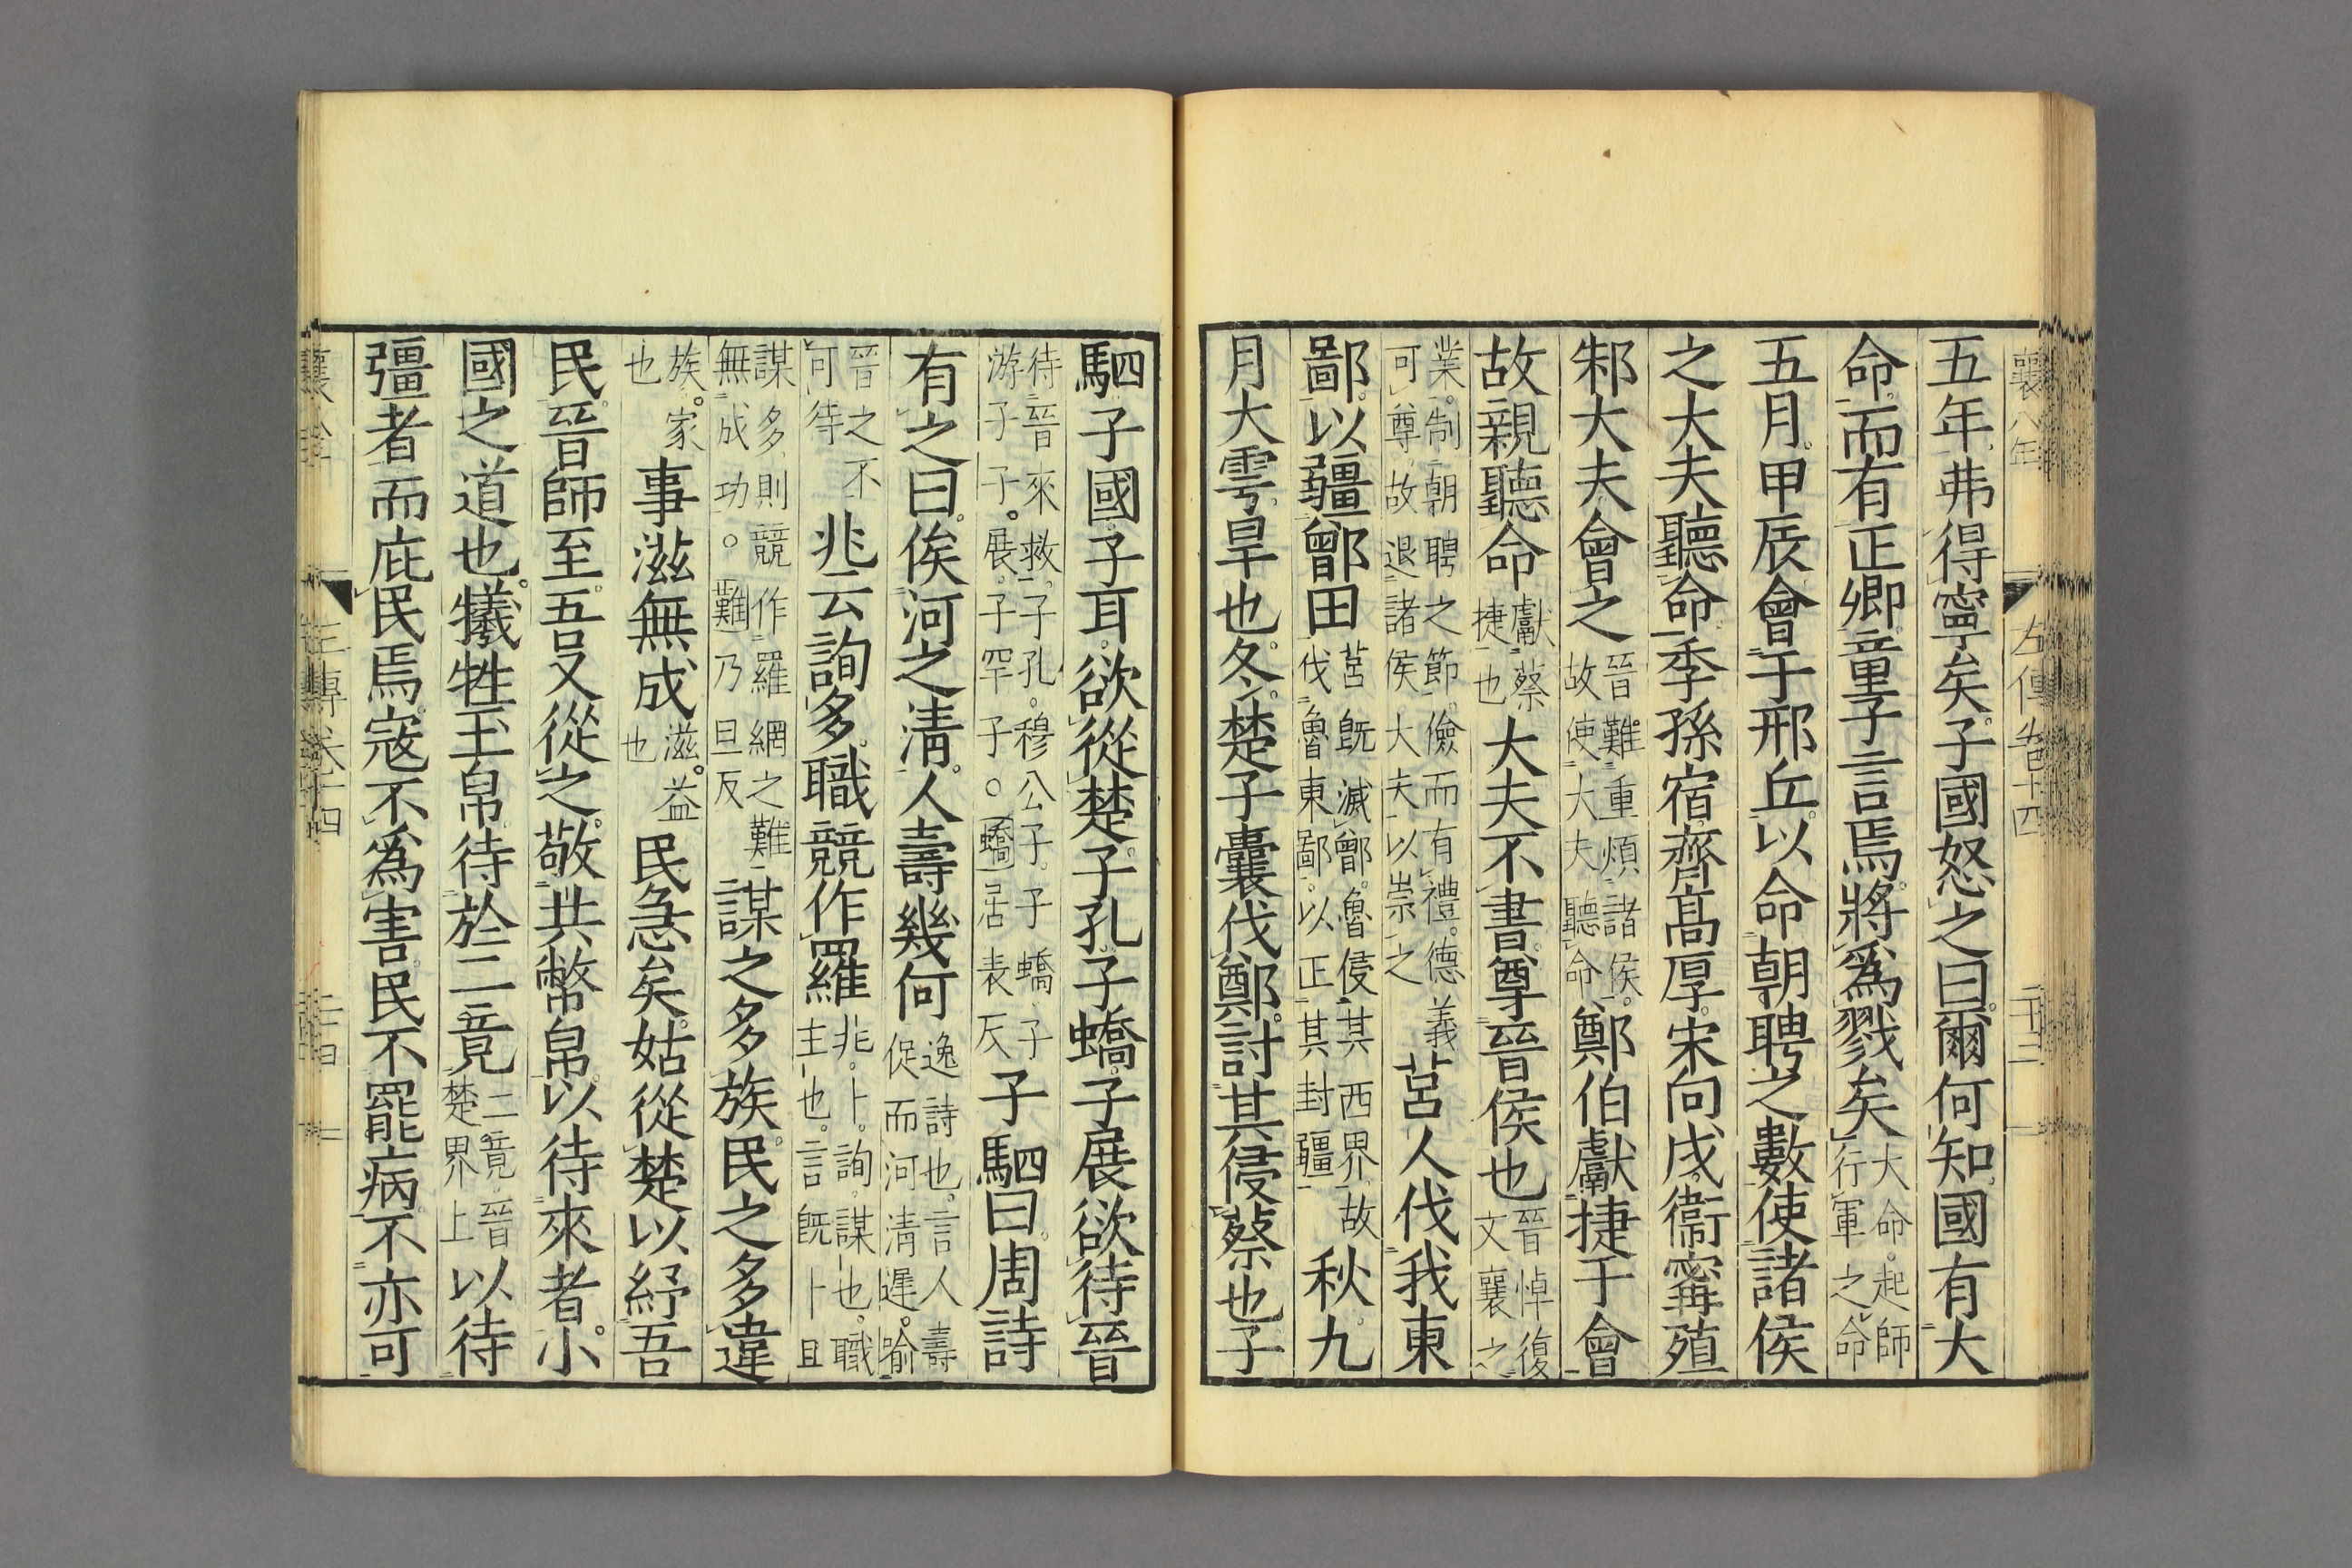 襄八年　左傳卷十四
五年弗得寧矣子國怒之曰爾何知國有大
命而有正卿童子言焉將爲戮矣大命起師行軍之命
五月甲辰會于邢丘以命朝聘之數使諸侯
之大夫聽命季孫宿齊高厚宋向戌衞甯殖
邾大夫會之晉難重煩諸侯故使大夫聽命鄭伯獻捷于會
故親聽命獻蔡捷也大夫不書尊晉侯也晉悼復文襄之
業制朝聘之節儉而有禮德義可尊故退諸侯大夫以崇之莒人伐我東
鄙以疆鄫田莒旣滅鄫魯侵其西界故伐魯東鄙以正其封疆秋九
月大雩旱也冬楚子囊伐鄭討其侵蔡也子
駟子國子耳欲從楚子孔子蟜子展欲待晉
待晉來救子孔穆公子子蟜子游子子展子罕子○蟜居表反子駟曰周詩
有之曰俟河之淸人壽幾何逸詩也言人壽促而河淸遲喻
晉之不可待兆云詢多職競作羅兆卜詢謀也職主也言旣卜且
謀多則競作羅網之難無成功○難乃旦反謀之多族民之多違
族家也事滋無成滋益也民急矣姑從楚以紓吾
民晉師至吾又從之敬共幣帛以待來者小
國之道也犧牲玉帛待於二竟二竟晉楚界上以待
彊者而庇民焉寇不爲害民不罷病不亦可